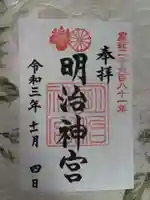 皇紀二千六百八十一年
奉拝
明治神宮
令和三年十一月四日